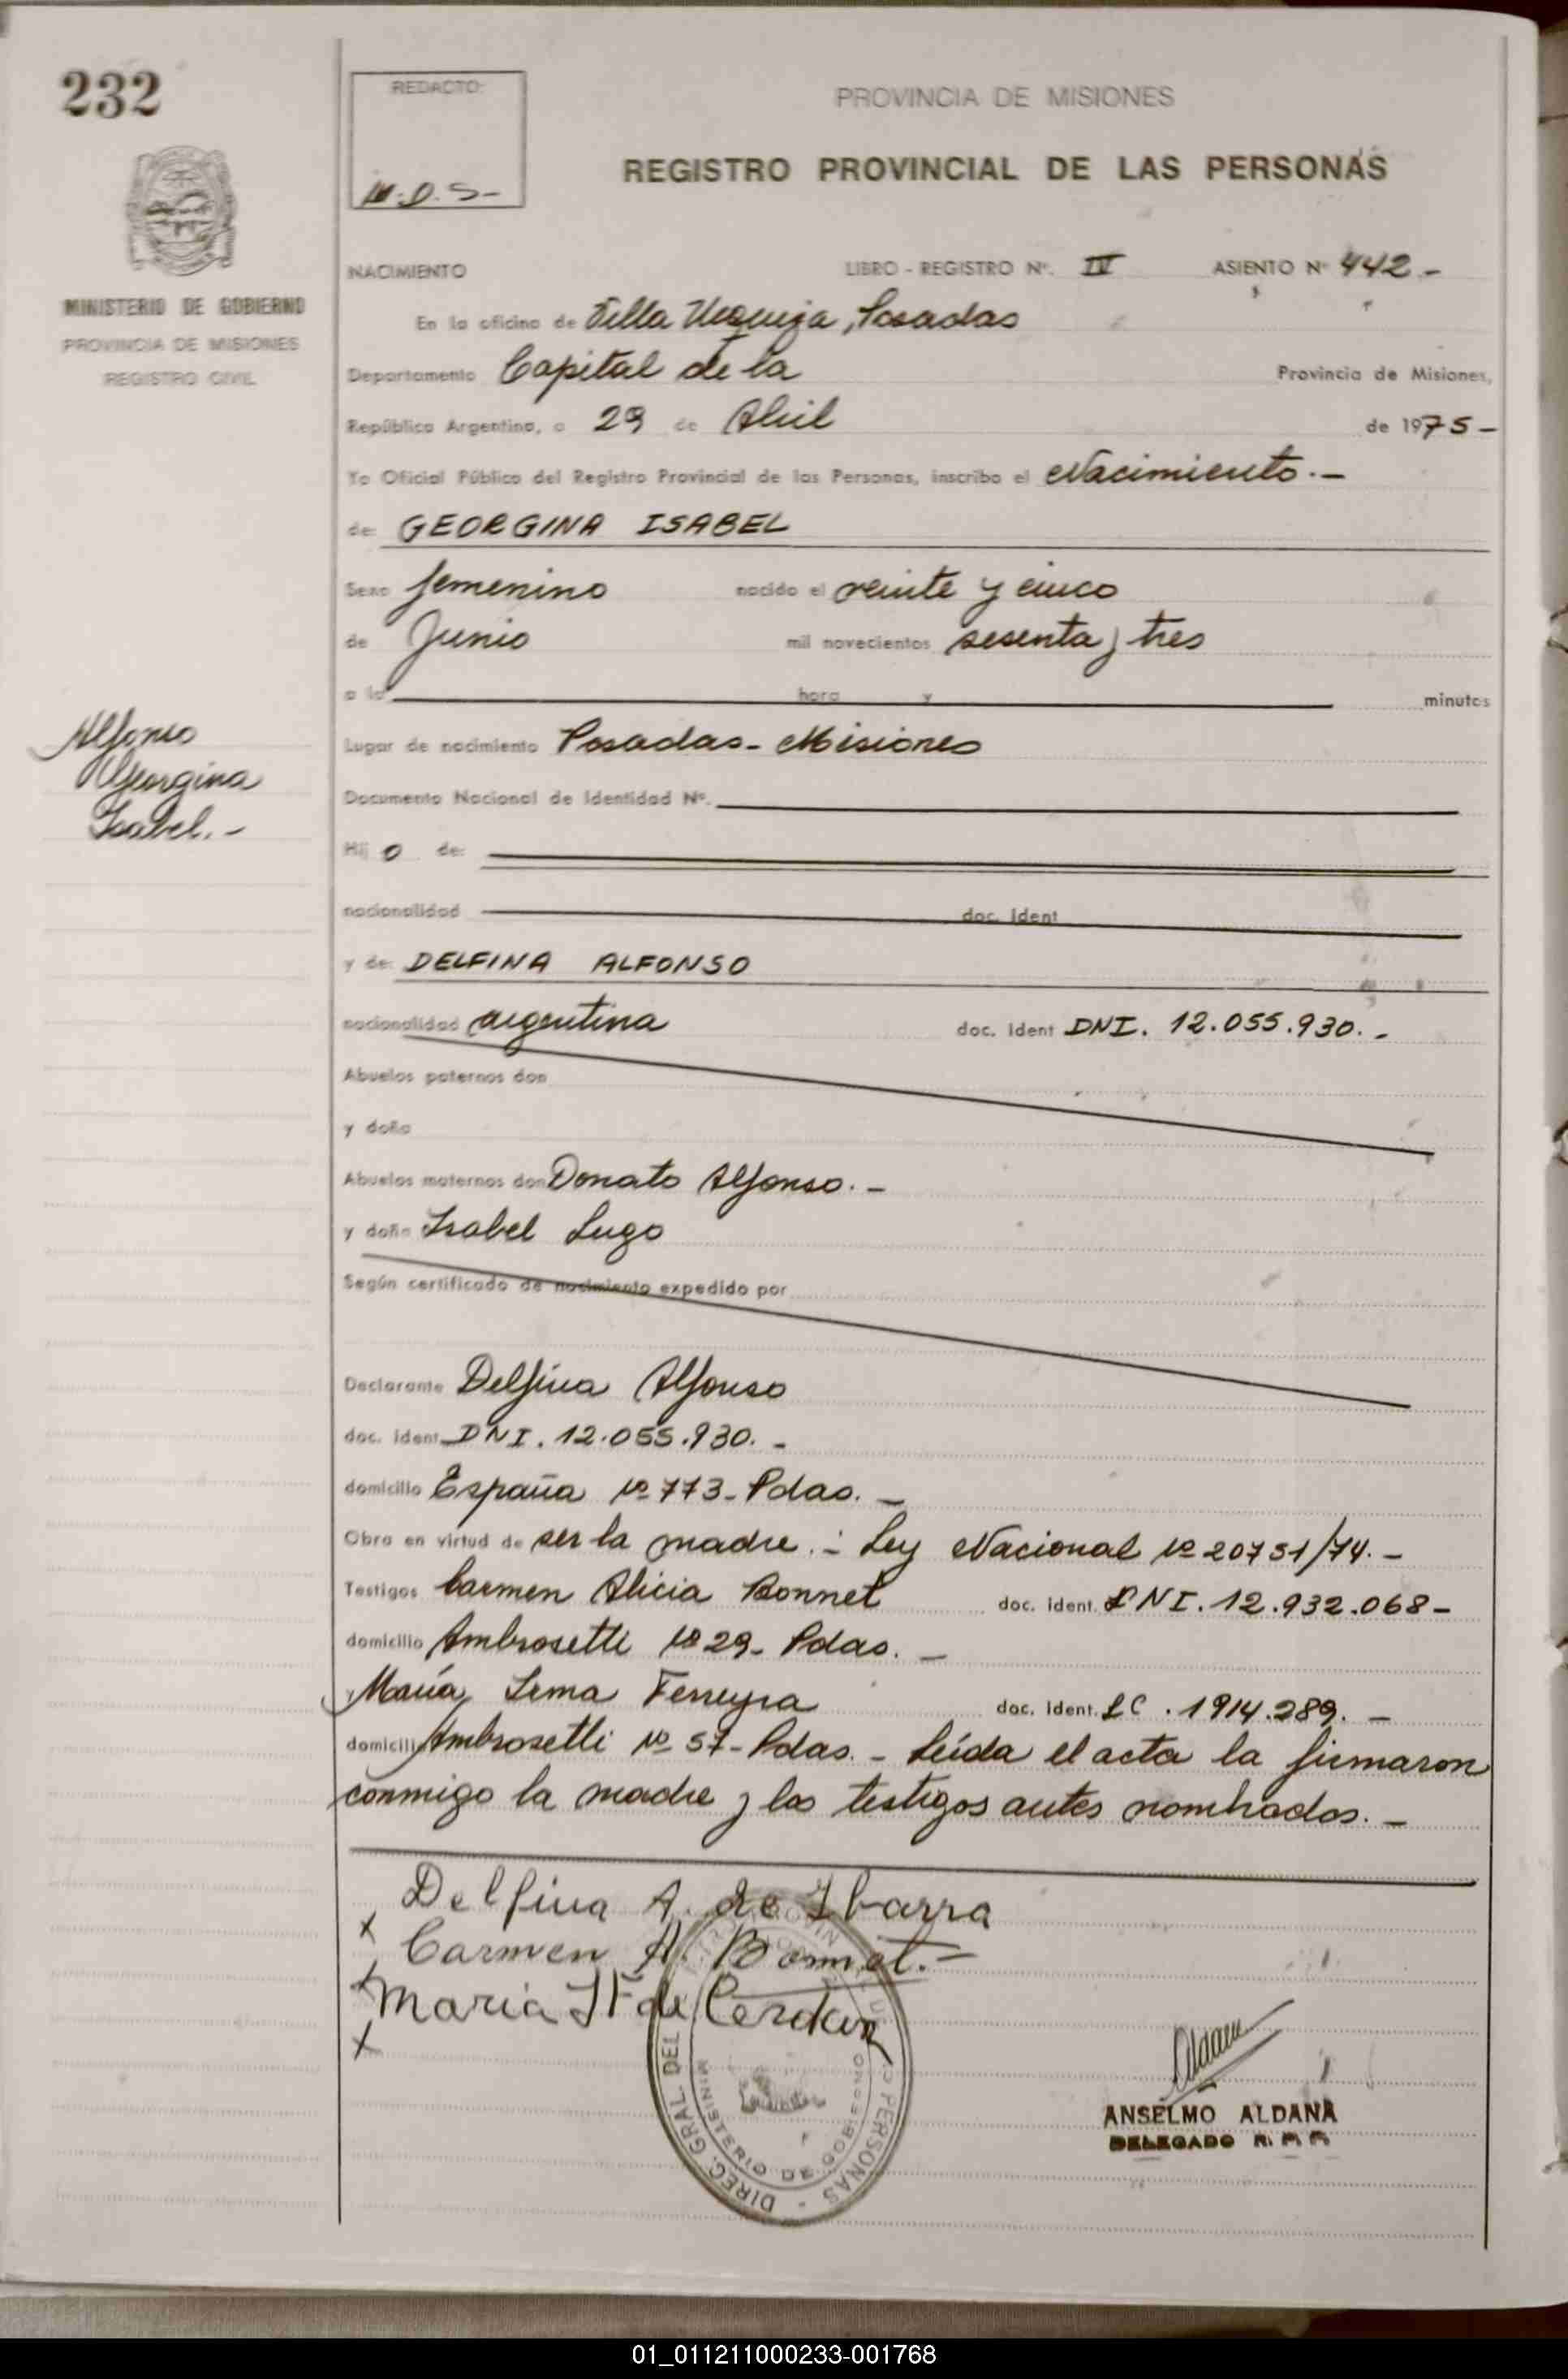 232
REDACTO:
M.D.S-
MINISTERIO DE GOBIERNO
PROVINCIA DE MISIONES
REGISTRO CIVIL
PROVINCIA DE MISIONES
REGISTRO PROVINCIAL DE LAS PERSONAS
NACIMIENTO LIBRO - REGISTRO Nº. IV ASIENTO Nº 442.-
En la oficina de Villa Urquiza, Posadas
Departamento Capital de la Provincia de Misiones,
República Argentina, a 29 de Abril de 1975-
Yo Oficial Público del Registro Provincial de las Personas, inscribo el Nacimiento.-
de: GEORGINA ISABEL
Sexo femenino nacido el veinte y cinco
de Junio mil novecientos sesenta y tres
a la hora y minutos
Alfonso
Georgina
Isabel.-
Lugar de nacimiento Posadas- Misiones
Documento Nacional de Identidad Nº.
Hij o de:
nacionalidad doc. Ident
y de: DELFINA ALFONSO
nacionalidad argentina doc. Ident DNI. 12.055.930.-
Abuelos paternos don
y doña
Abuelos maternos don Donato Alfonso.-
y doña Isabel Lugo
Según certificado de nacimiento expedido por
Declarante Delfina Alfonso
doc. ident DNI. 12.055.930.-
domicilio España Nº 773- Pdas.-
Obra en virtud de ser la madre.- Ley Nacional Nº 20751/74.-
Testigos Carmen Alicia Bonnet doc. ident. DNI. 12.932.068-
domicilio Ambrosetti Nº 29- Pdas.-
y María Irma Ferreyra doc. ident. LC. 1914.289.-
domicilio Ambrosetti Nº 57- Pdas.- Leída el acta la firmaron
conmigo la madre y los testigos antes nombrados.-
Delfina A. de Ibarra
x Carmen A. Bonnet.-
x Maria I F de Cerdan
x
DIREC. GRAL DEL PERSONAS -
MINISTERIO DE GOBIERNO
ANSELMO ALDANA
DELEGADO R. P. P.
01_011211000233-001768